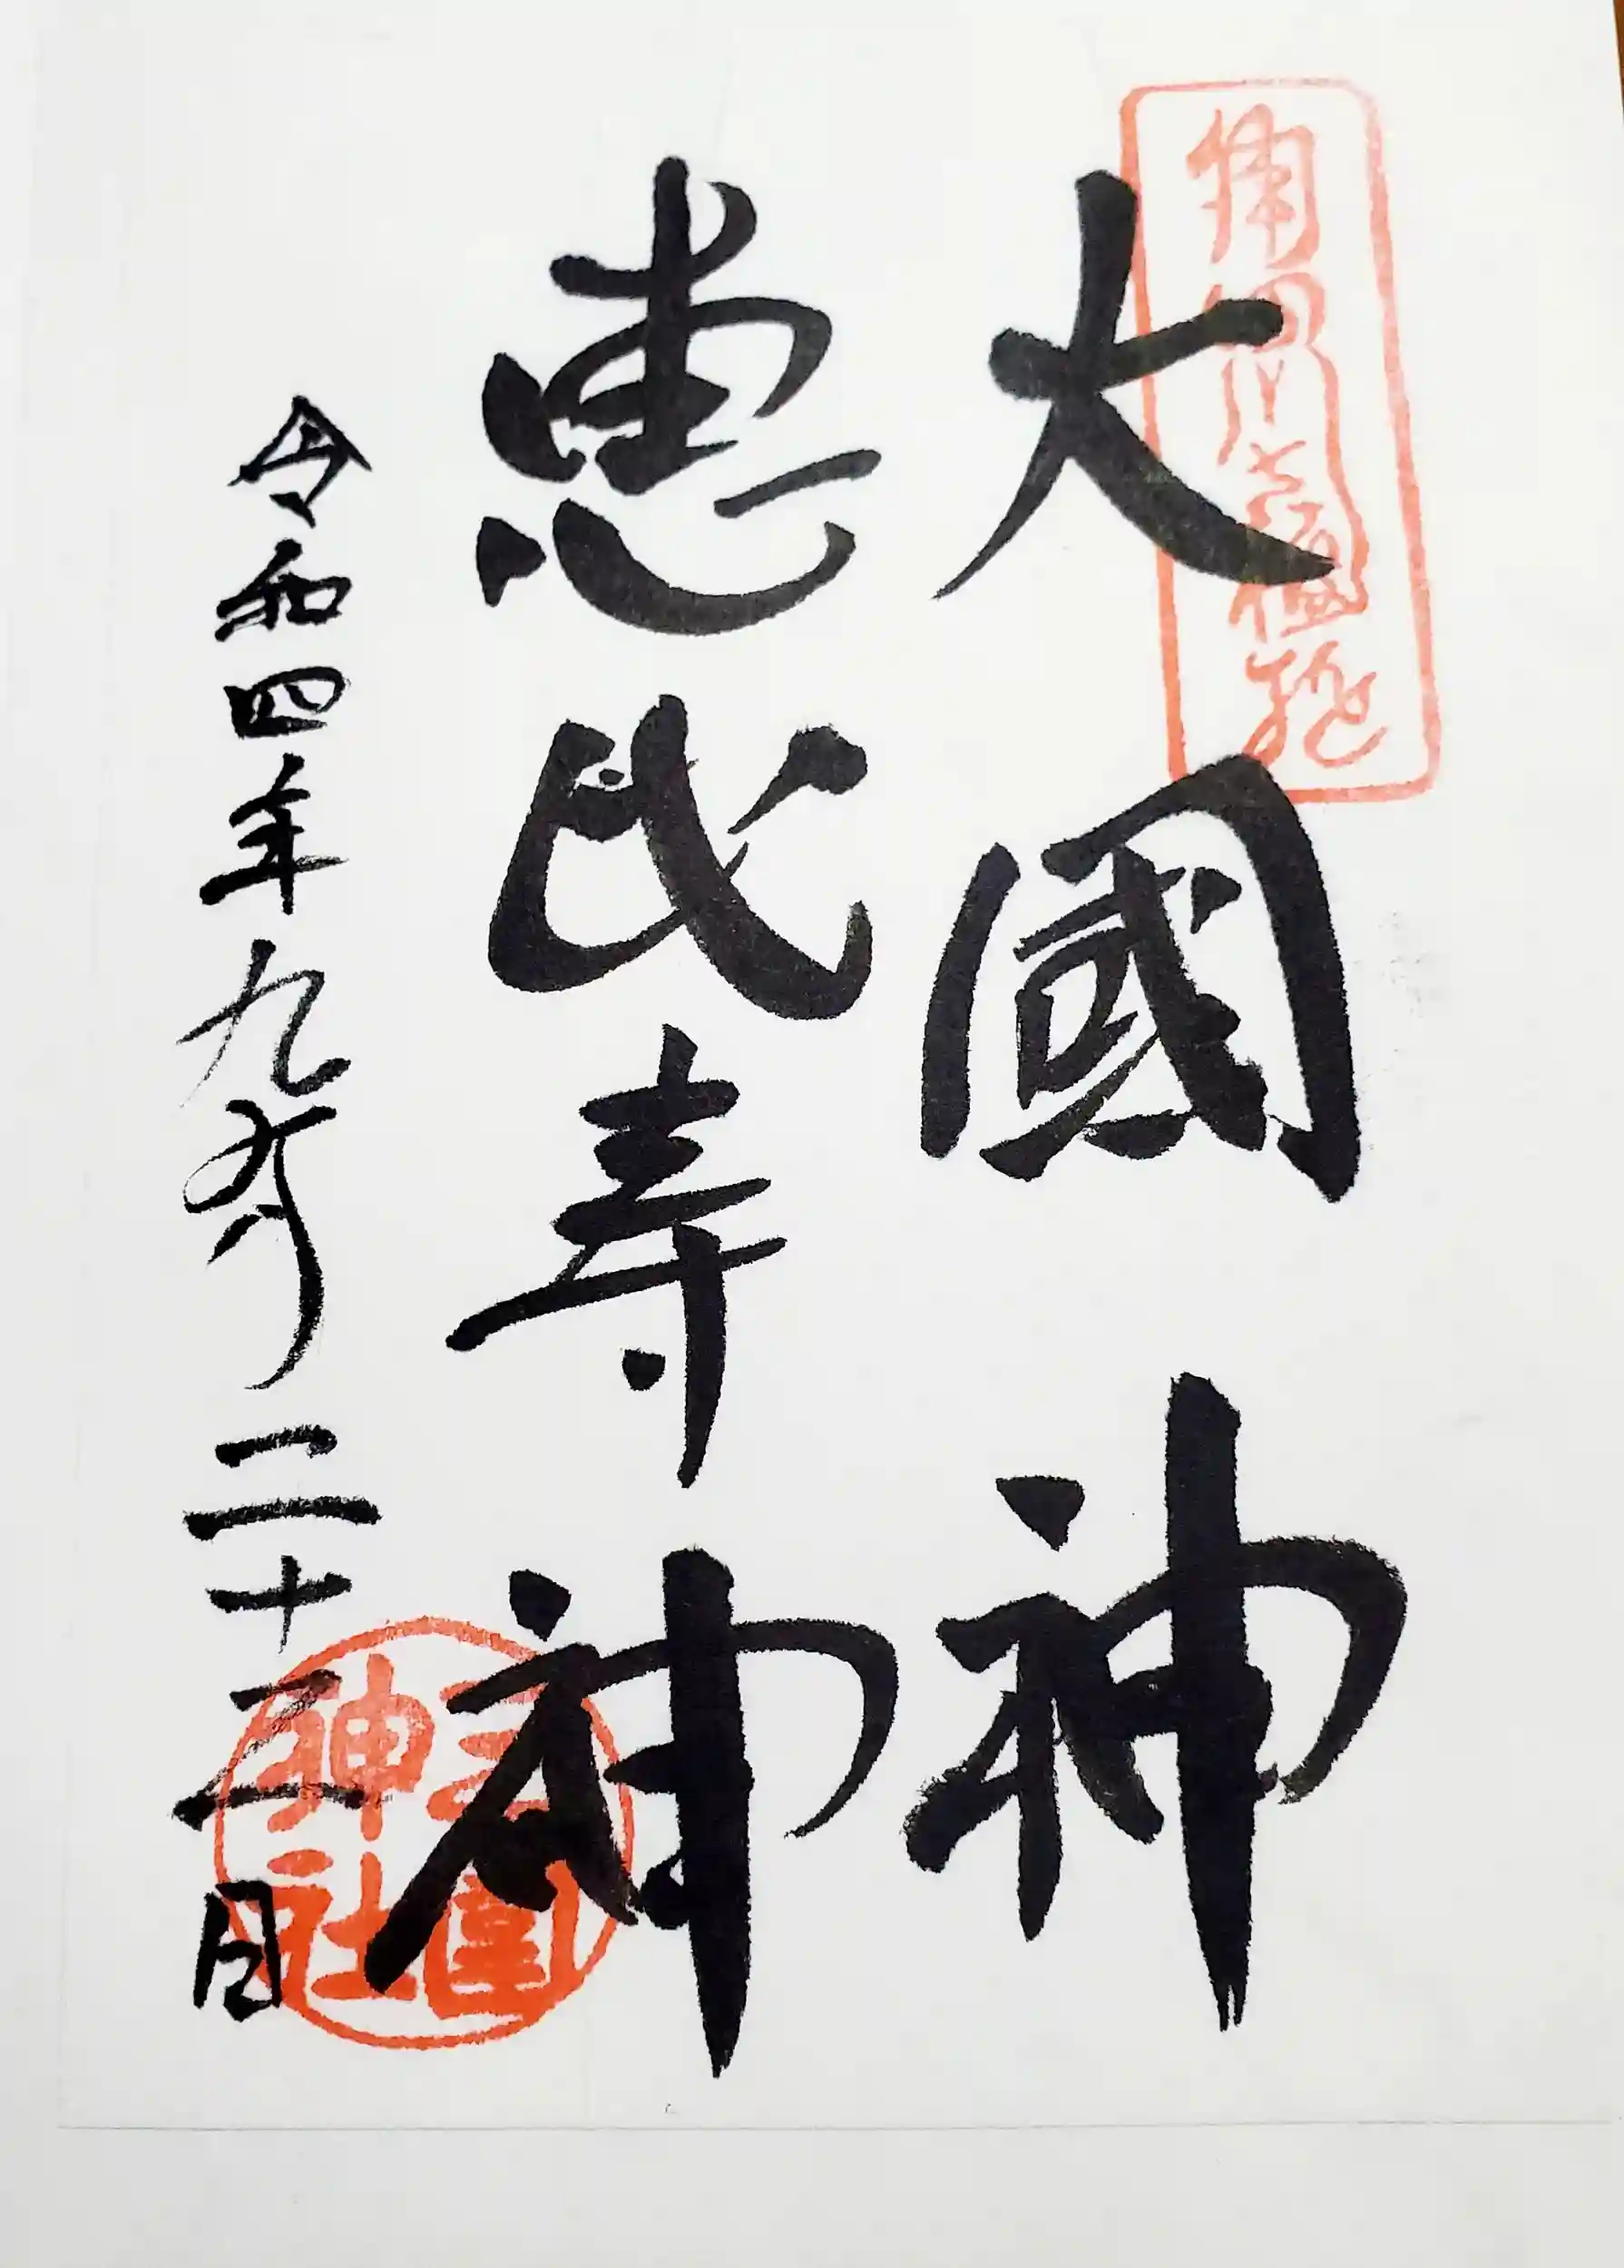 大國神
恵比寿神
令和四年九月二十二日
三圍神社